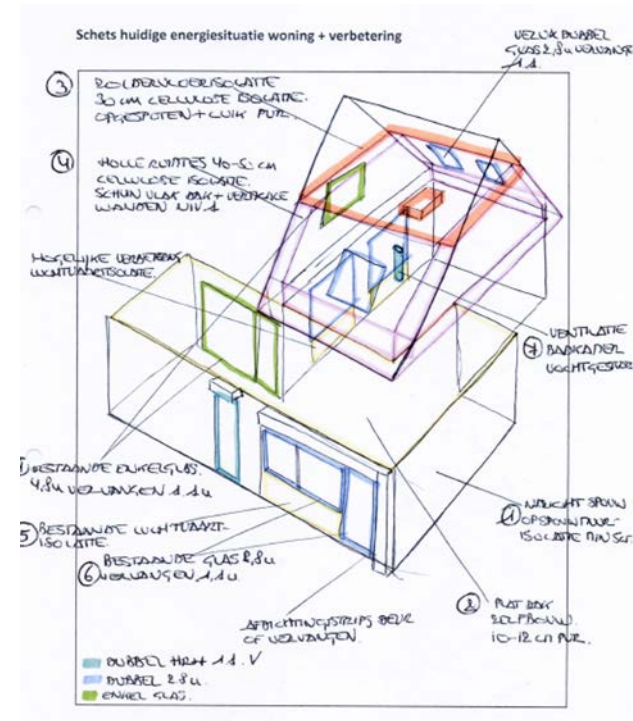 Schets huidige energiesituatie woning + verbetering
DUBBEL
GLAS 2,8u VERVANGEN
1.1.
③ ZOLDERVLOERISOLATIE
30 CM CELLULOSE ISOLATIE.
OPGESPOTEN + LUIK PUR.
④ HOLLE RUIMTES 40-50 CM
CELLULOSE ISOLATIE.
SCHUIN VLAK DAK +
WANDEN NIV. 1
MOGELIJKE
LUCHTVAARTISOLATIE.
VENTILATIE
⑦ BADKAMER
VOCHTGESTUUR
BESTAANDE ENKELGLAS.
4.8u VERVANGEN 1.1u
⑤ BESTAANDE LUCHTVAART-
ISOLATIE.
⑥ BESTAANDE GLAS 2,8u
VERVANGEN 1,1u.
NALICHT SPOUW
① OPSPOUWMUUR-
ISOLATIE
② PLAT DAK
ZELFBOUW.
10-12 CM PUR.
AFDICHTINGSTRIPS DEUR
OF VERVANGEN.
DUBBEL HR++ 1.1. V
DUBBEL 2.8u.
ENKEL GLAS.